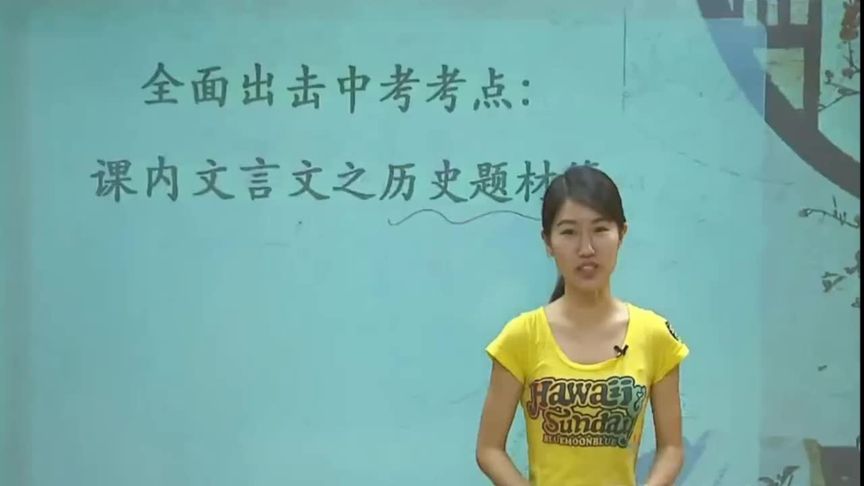 全面出击中考考点:
课内文言文之历史题材
Hawaii
Sunday
BLUEMOONBLUE